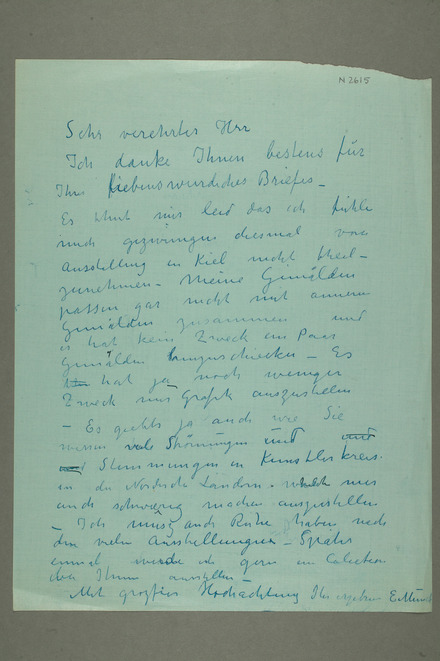 N 2615
Sehr verehrter Herr
Ich danke Ihnen bestens für
Ihr liebenswürdiches Briefes –
Es thut mir leid das ich fühle
mich gezwungen diesmal von
Ausstellung in Kiel nicht theil-
zunehmen – Meine Gemälden
passen gar nicht mit anderen
Gemälden zusammen und
es hat kein Zweck ein Paar
Gemälden – Es
hat ja noch weniger
Zweck nur Grafik auszustellen
– Es giebts ja auch wie Sie
wissen viele Strömungen und
Stemmungen in Kunstlerkreis
in die Nordische Ländern – mir
auch schwierig machen auszustellen
– Ich muss auch Ruhe haben nach
den vielen Ausstellungen – Später
einmal werde ich gern ein Colection
bei Ihnen ausstellen –
Mit groβter Hochachtung Ihr ergebene E Munch